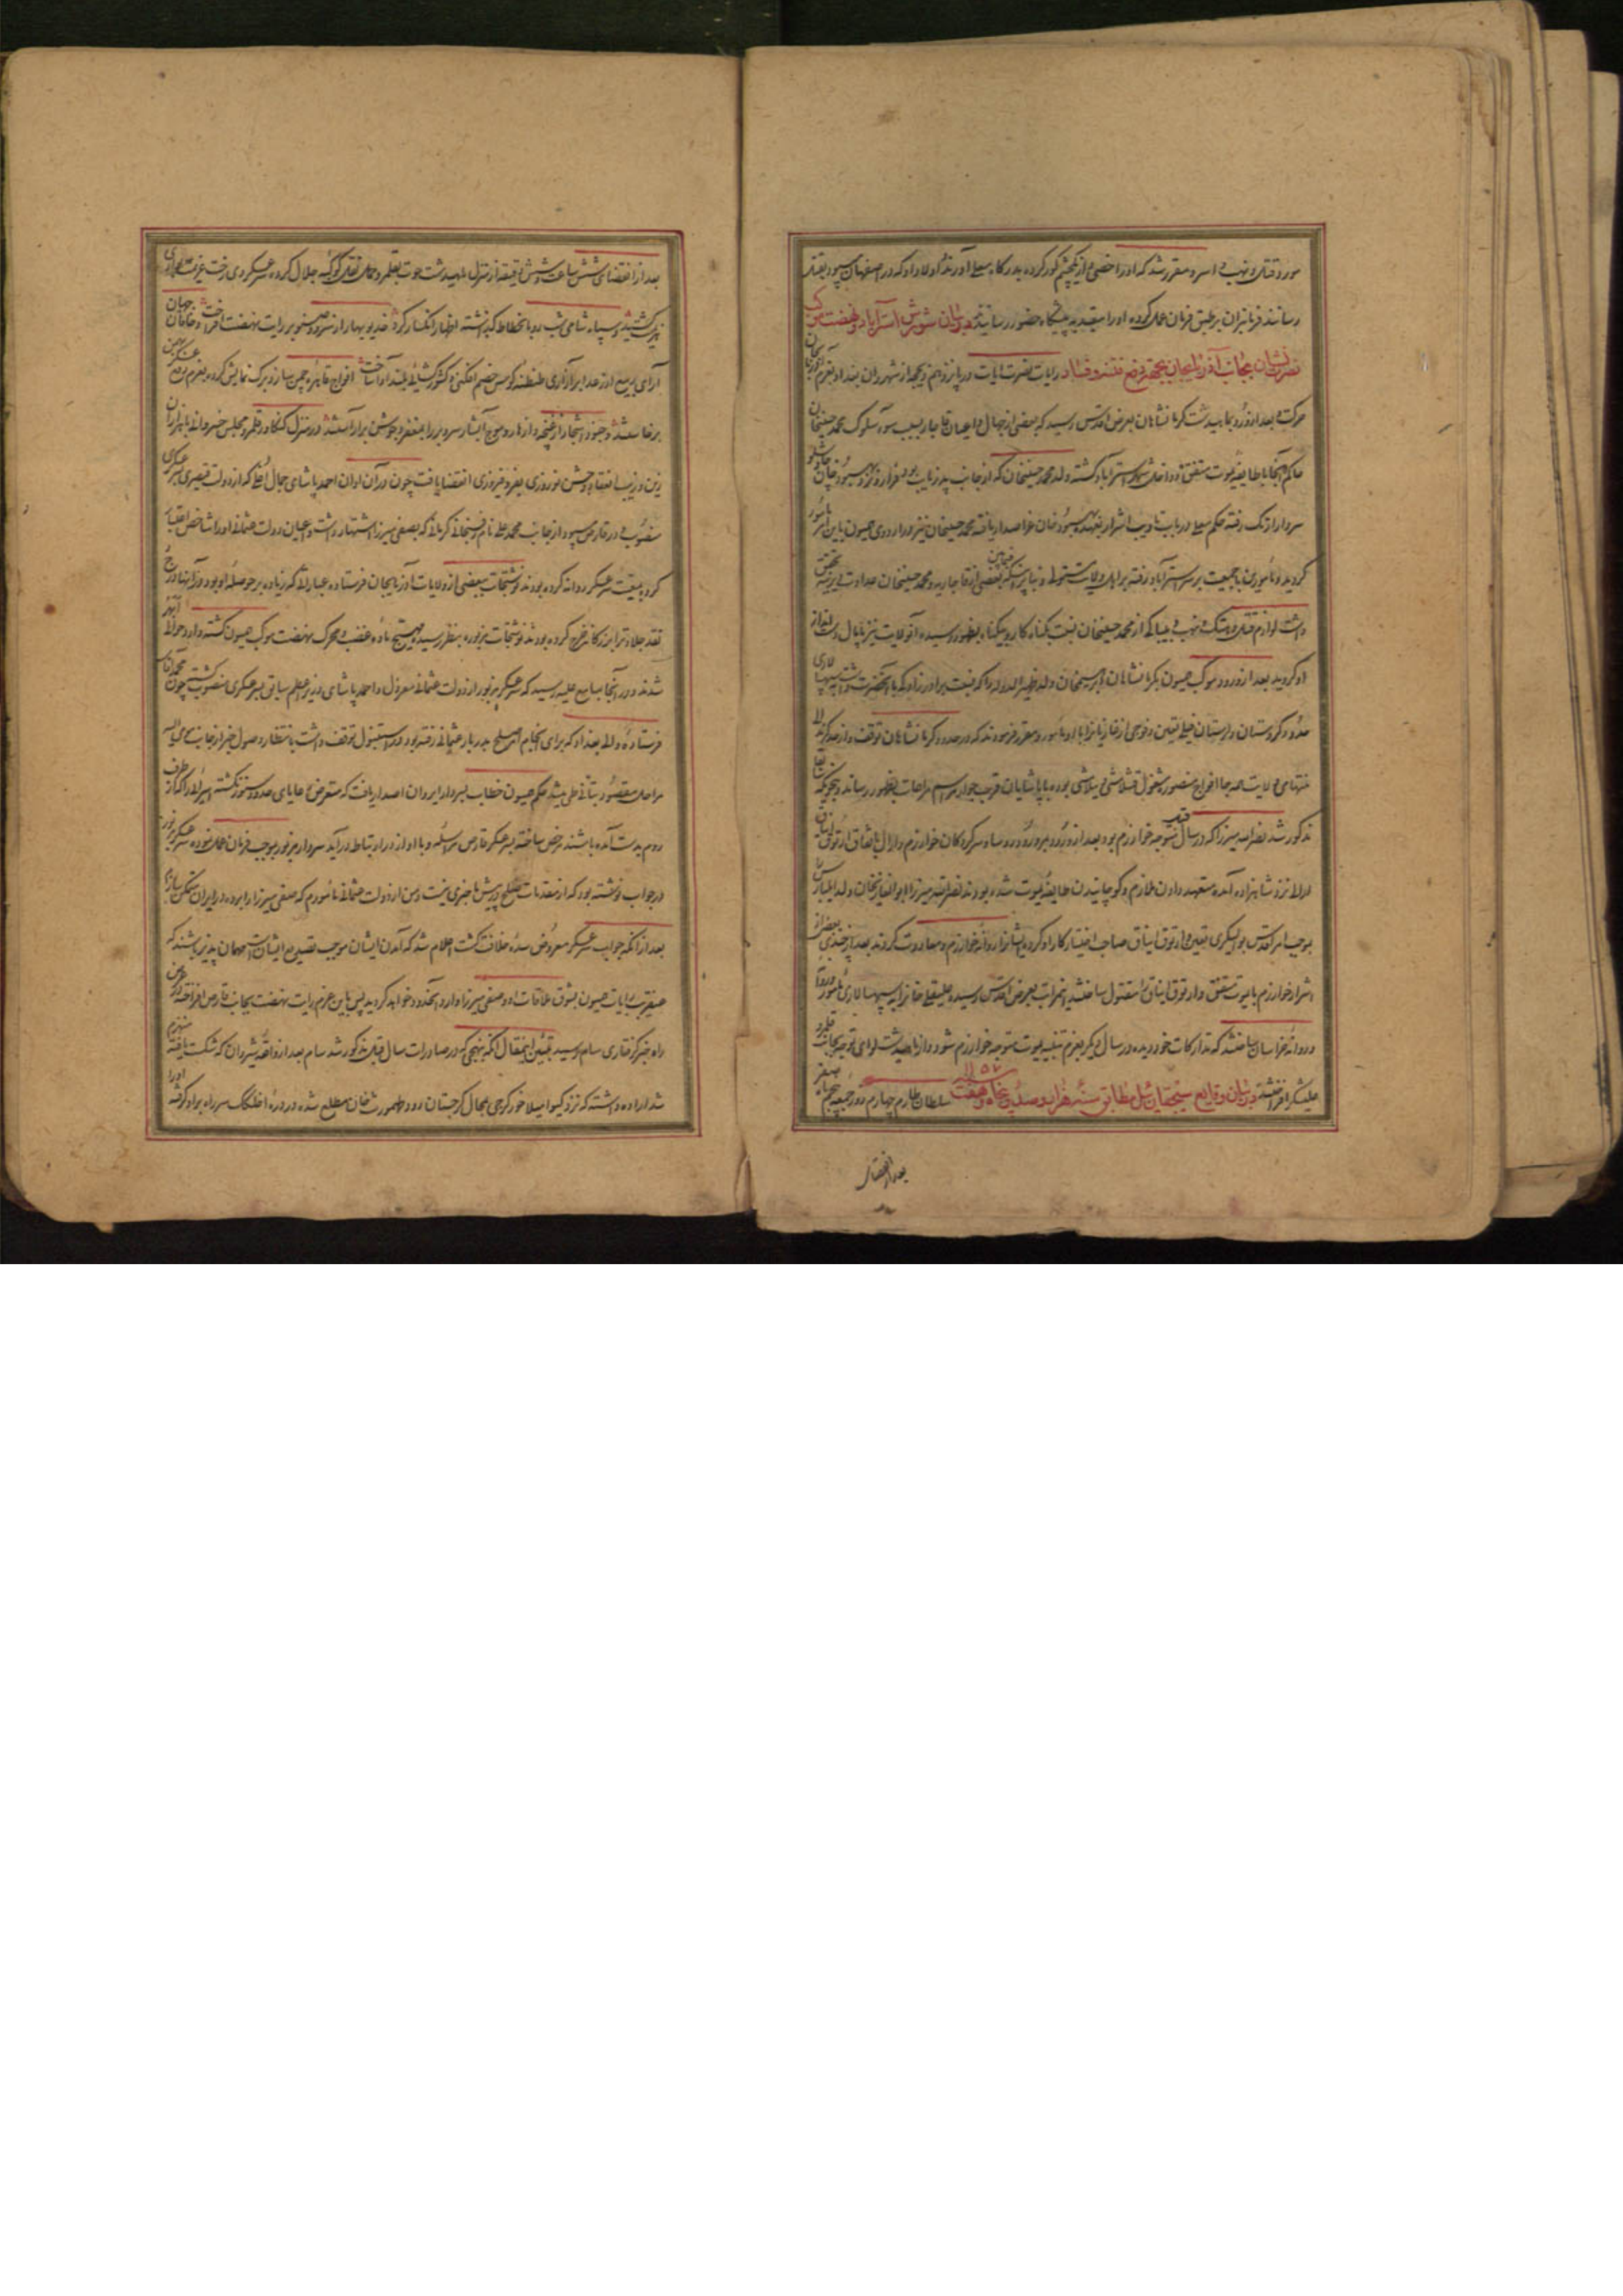 مورد قتل و نهب و اسر و مقرر شد که او را خصی و از یکچشم کور کرده بدرگاه معلی آورند و اولاد او که در اصفهان میبود بقتل
رسانند فرمانبران برطبق فرمان عمل کرده او را مقید به پیشگاه حضور رسانیدند در بیان شورش استرآباد و نهضت موکب
نصرت نشان بجانب آذربایجان بجهة رفع فتنه و فساد رایات نصرت آیات در پانزدهم ذیحجه از شهروان بغداد بعزم آذربایجان
حرکت و بعد از ورود بماهیدشت کرمانشاهان بعرض اقدس رسید که بعضی از جهال و اعیان قاجار بسبب سوء سلوک محمد حسینخان
حاکم آنجا با طایفه یموت متفق و داخل شهر استرآباد گشته ولد محمد حسینخان که از جانب پدر نایب بود فرار و نیز بهبود خان چاپشلو
سردار اترک رفته حکم معلی در باب تادیب اشرار بعهده بهبود خان عز اصدار یافته محمد حسینخان نیز در اردوی همیون باین امر مامور
گردید و مأمورین با جمعیت بر سر استرآباد رفته بر اهل ولایت مستولی و بنابر اینکه فیمابین بعضی از قاجاریه و محمد حسینخان عداوت دیرینه تحقق
داشت لوازم قتل و هتک و نهب و بیباکی از محمد حسینخان نسبت بگناه کار و بیگناه بظهور رسیده آنولایت نیز پایمال دست انداز
او گردید بعد از ورود موکب همیون بکرمانشاهان ابراهیمخان ولد ظهیر الدوله را که نسبت برادرزادگی با آنحضرت داشت سپهسالاری
حدود کردستان و لرستان فیلی تعیین و فوجی از غازیانرا با او مأمور و مقرر فرمودند که در حدود کرمانشاهان توقف و از حد کرند الی
منتهای ولایت همه جا افواج منصور مشغول قشلامشی و ییلامشی بوده با پاشایان قرب جوار مراسم مراعات بظهور رساند و بنحویکه سابقا
مذکور شد نصرالله میرزا که در سال قبل متوجه خوارزم بود بعد از ورود بمرو رؤسا و سرکردگان خوارزم و ارال باتفاق ارتوق ایناق
ارال نزد شاهزاده آمده متعهد دادن ملازم و کوچانیدن طایفه یموت شده بودند نصرالله میرزا ابوالغازیخان ولد ایلبارس را
بموجب امر اقدس بوالیگری تعیین و ارتوق ایناق صاحب اختیار کار او کرده ایشانرا روانه خوارزم و معاودت کردند بعد از چندی بعضی از
اشرار خوارزم با یموت متفق و ارتوق ایناق را مقتول ساختند اینمراتب بعرض اقدس رسیده علیقلی خانرا به سپهسالاری مأمور
و روانه خراسان ساختند که تدارکات خود دیده در سال دیگر بعزم تنبیه یموت متوجه خوارزم شود و از ماهیدشت لوای توجه بجانب قلمرو
علیشکر افراختند در بیان وقایع سیچقان ئیل مطابق سنه هزار و صد و پنجاه و هفت ۱۱۵۷ سلطان طارم چهارم روز جمعه پنجم ماه صفر
بعد از انقضا
بعد از انقضای شش ساعت و شش دقیقه از منزل ماهیدشت حوت بقلمرو حمل نقل کوکبه جلال کرده سرعسکر دی رخت عزیمت
بر کشید و سپاه شامی شب رو بانحطاط گذاشته اظهار انکسار کرد خدیو بهار از سرو و صنوبر رایت نهضت افراخت و خاقان جهان
آرای ربیع از رعد ابر آزاری طنطنه کوس خصم افکنی و کشورگشائی بلند آوا ساخت افواج قاهره چمن ساز و برگ نمایش کرده بعزم رزم عسکر بهمن
برخاستند و جنود اشجار از غنچه و ازهار و موج آبشار سر و بر را بمغفر و جوشن بیاراستند در منزل کنگاور قلمرو مجلس خسروانه بآئین
زین و زیب انعقاد و جشن نوروزی بفر و فیروزی انقضا یافت چون در آن اوان احمد پاشای جمال اوغلی که از دولت قیصری بسرعسکری
منصوب و در قارص میبود از جانب محمد علی نام رفسنجانی کرمانی که بصفی میرزا اشتهار داشت و اعیان دولت عثمانی او را شاخص اعتبار
کرده بمعیت سرعسکر روانه کرده بودند نوشتجات ببعضی از ولایات آذربایجان فرستاده عباراتی که زیاده بر حوصله او بود در آنها درج
شدند و در آنجا بمسامع علیه رسید که سرعسکر مزبور از دولت عثمانی معزول و احمد پاشای وزیر اعظم سابق بسرعسکری منصوب گشته چون محمد آقا
فرستاده والی بغداد که برای انجام امر صلح بدربار عثمانی رفته بود در استنبول توقف داشت بانتظار وصول خبر از جانب مومی الیه
مراحل مقصود بتانی طی میشد حکم همیون خطاب بسردار ایروان اصدار یافت که متعرض رعایای حدود سنور نگشته اسیرانی را که از طرف
روم بدست آمده باشند مرخص ساخته بسرعسکر قارص مراسله و با او از در ارتباط در آید سردار مزبور بموجب فرمان عمل نموده سرعسکر مزبور
در جواب نوشته بود که از مقدمات صلح و سازش ما خبری نیست و من از دولت عثمانی مامورم که صفی میرزا را برده در ایران متمکن سازم
بعد از آنکه جواب سرعسکر معروض سده خلافت گشت اعلام شد که آمدن ایشان موجب تصدیع ایشانست مهمان پذیر باشند که
عنقریب رایات همیون بشوق ملاقات او و صفی میرزا وارد آنحدود خواهد گردید پس باین عزم رایت نهضت بجانب قارص افراخته در عرض
راه خبر گرفتاری سام رسید تبیین اینمقال آنکه بنهجی که در صادرات سال قبل مذکور شد سام بعد از واقعه شیروان که شکست یافته منهزم
شد اراده داشته که نزد گیوامیلاخور گرجی بمحال گرجستان رود طهمورث خان مطلع شده در دره اخلکلک سر راه بر او گرفته او را